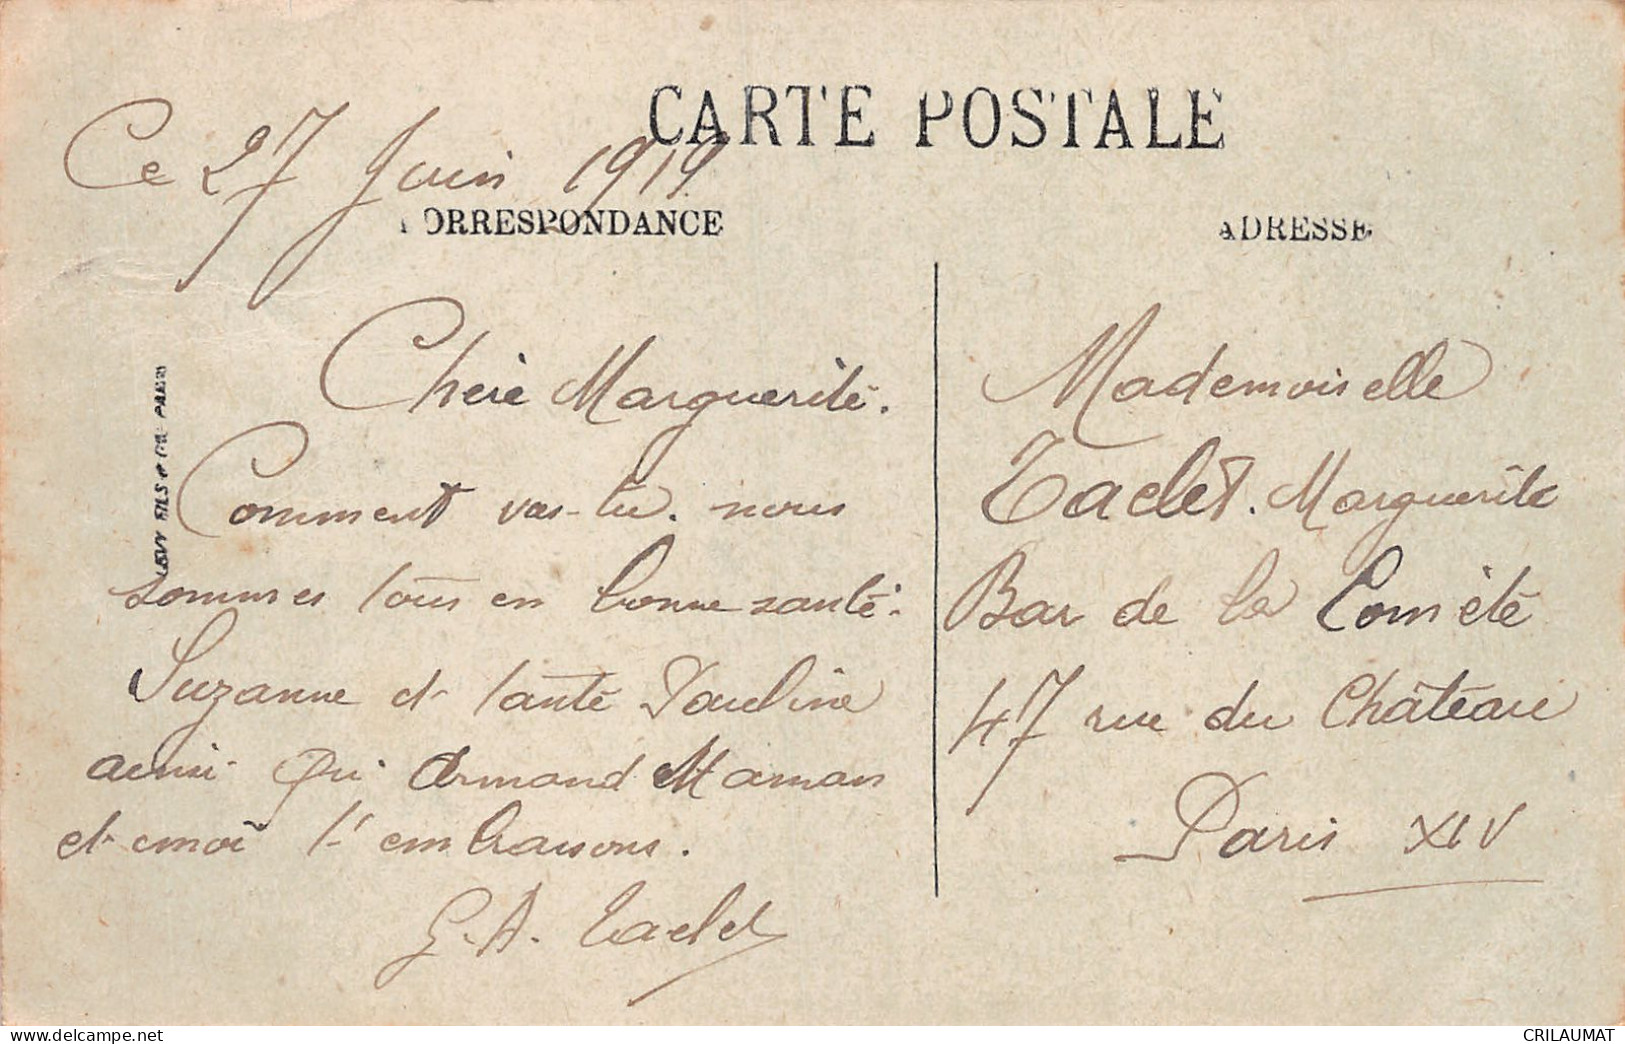 CARTE POSTALE
Ce 27 Juin 1919
CORRESPONDANCE
ADRESSE
Chère Marguerite.
Comment vas-tu. nous
sommes tous en bonne santé.
Suzanne et tante Pauline
ainsi que Armand Maman
et moi t'embrassons.
G. A. Taclet
Mademoiselle
Taclet. Marguerite
Bar de la Comète
47 rue du Château
Paris XIV
LEVY FILS & Cie PARIS
www.delcampe.net
CRILAUMAT